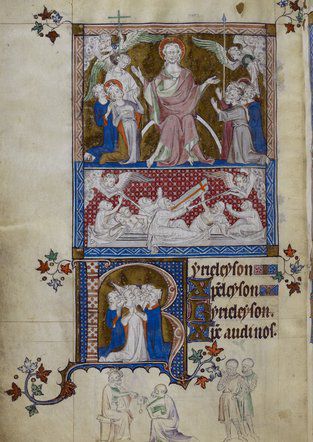 Kyrieleyson
Xp̄eleyson
Kyrieleyson.
Xp̄e audi nos.